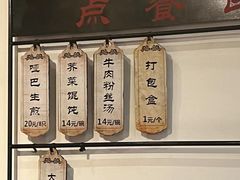 点 登
哑巴生煎
20元/8只
荠菜馄饨
14元/碗
牛肉粉丝汤
14元/碗
打包盒
1元/个
大